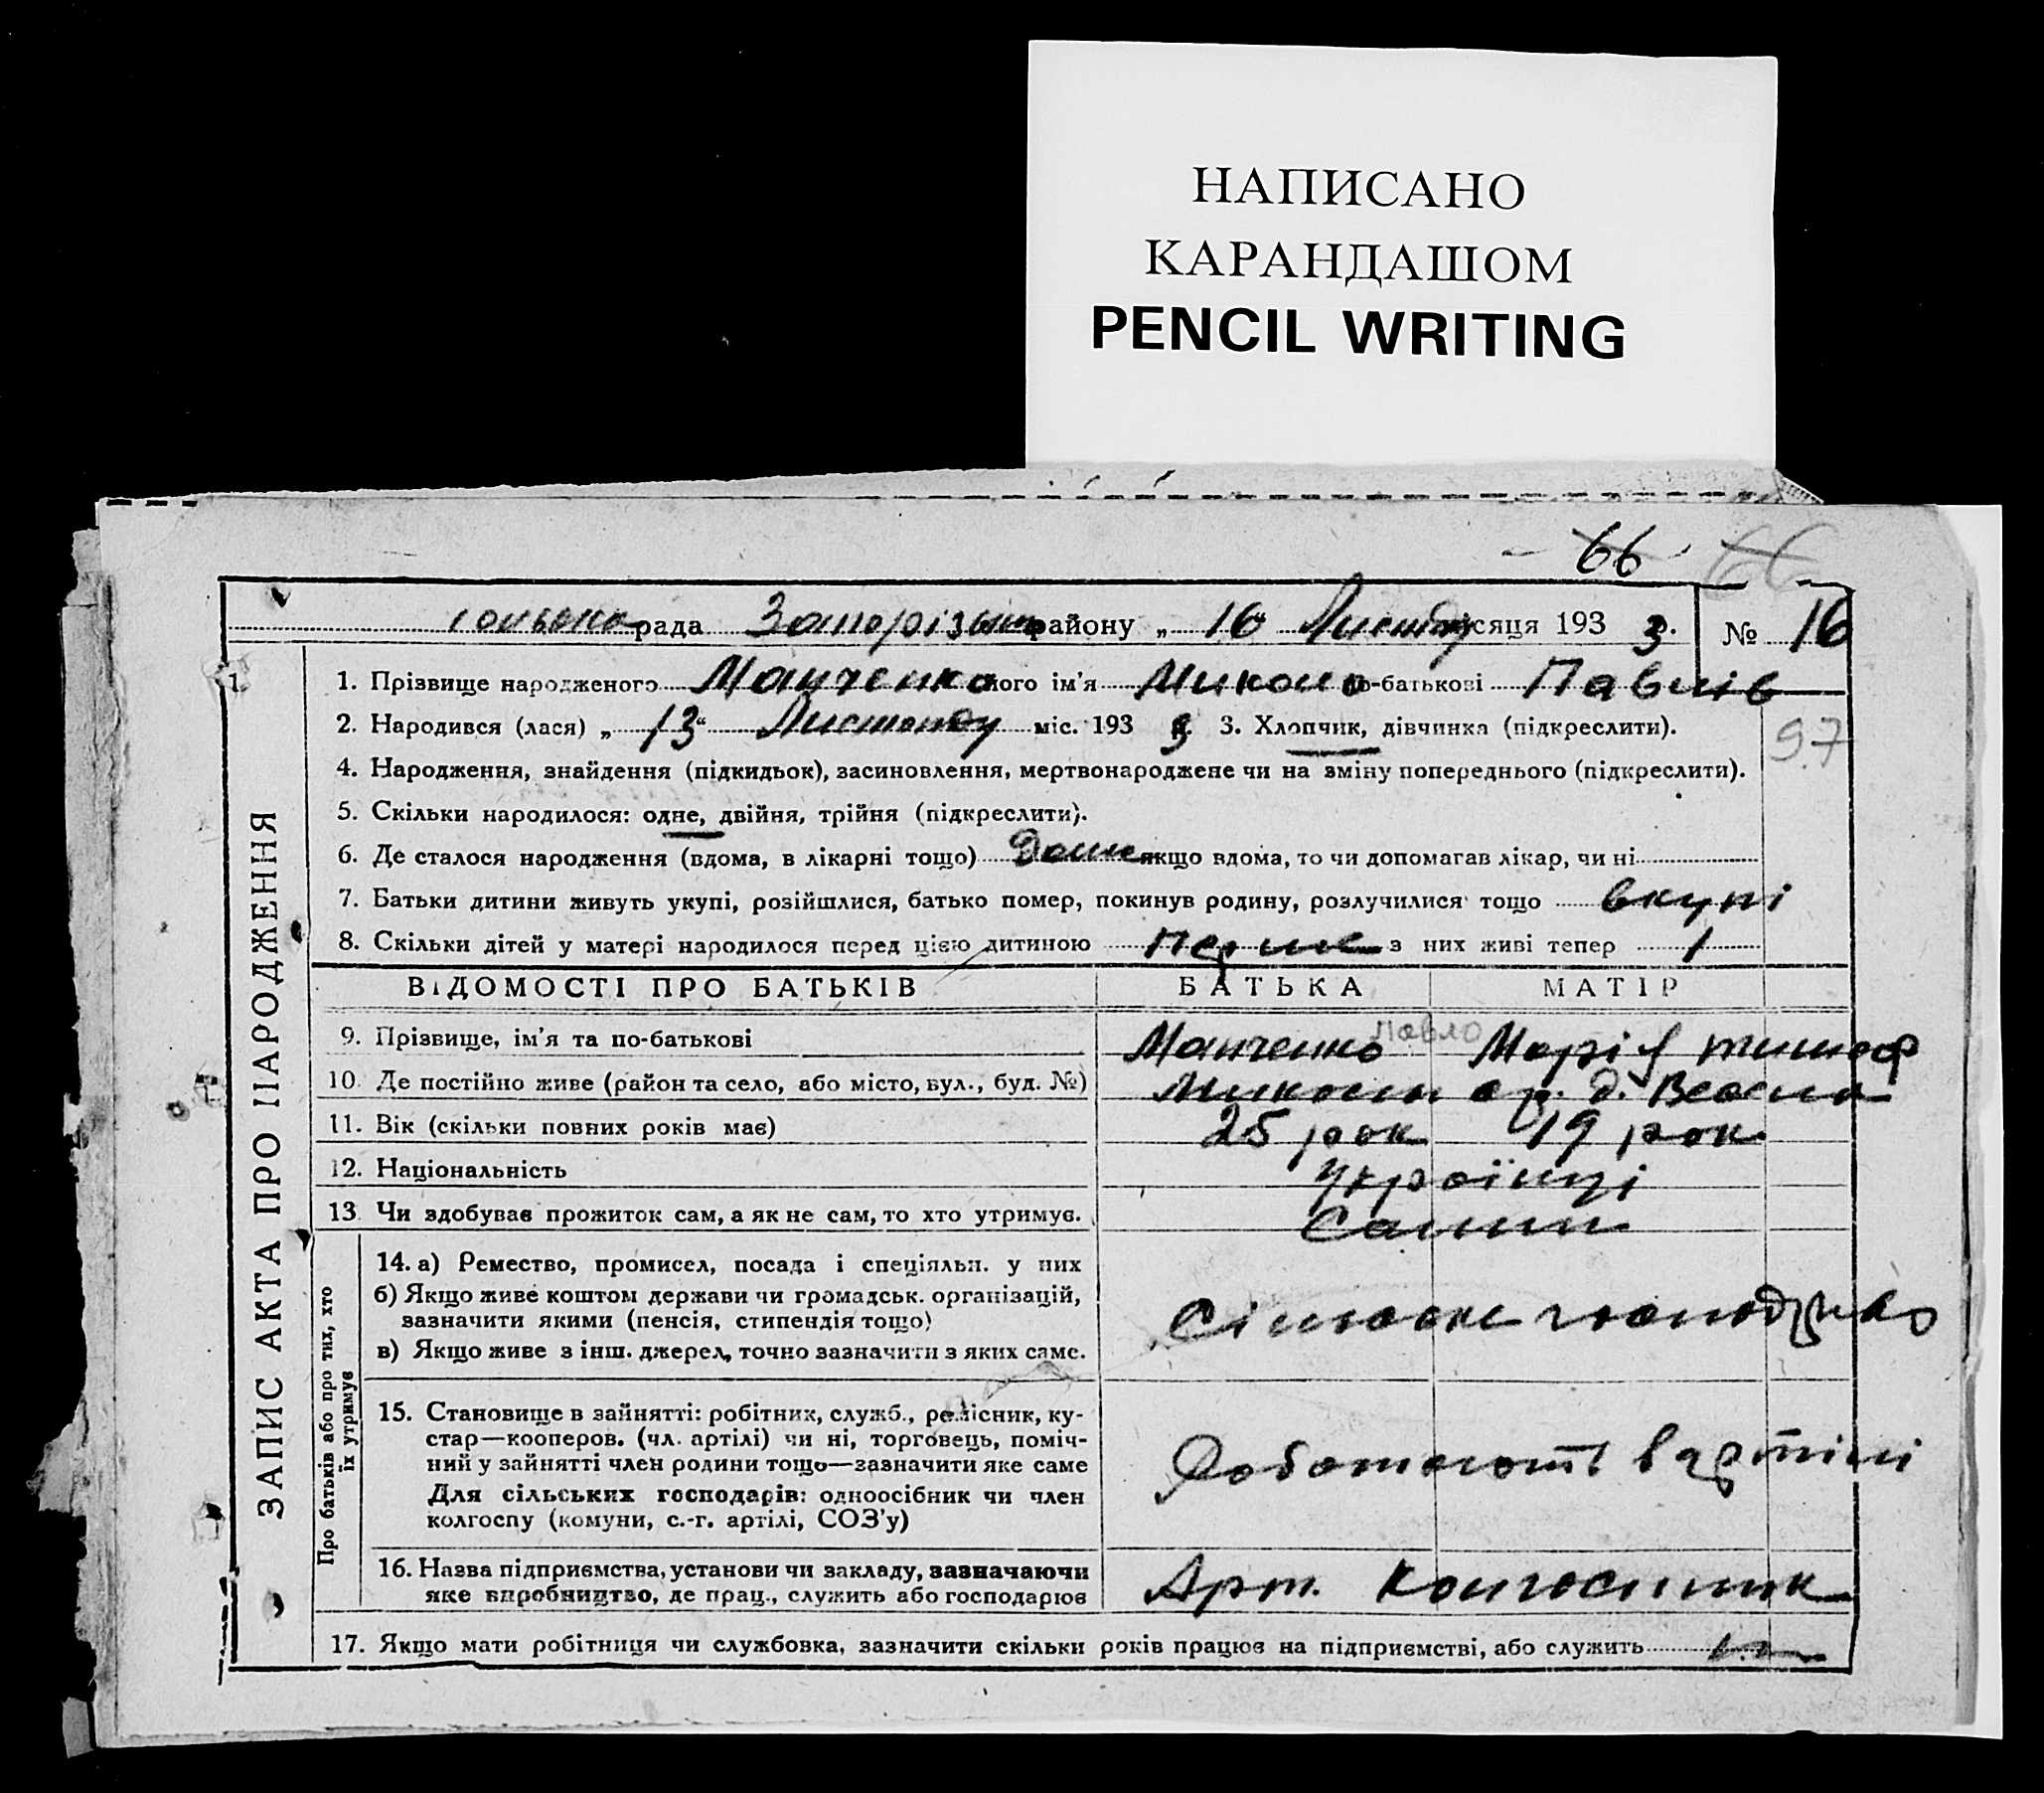 НАПИСАНО
КАРАНДАШОМ
PENCIL WRITING
66 66
рада Запорізько району „ 16 Листоп місяця 193 3 р. № 16
1. Прізвище народженого Манченко його ім'я Микола по-батькові Павлів
2. Народився (лася) „ 13 “ Листопаду міс. 193 3. Хлопчик, дівчинка (підкреслити).
97
4. Народження, знайдення (підкидьок), засиновлення, мертвонароджене чи на зміну попереднього (підкреслити).
5. Скільки народилося: одне, двійня, трійня (підкреслити).
6. Де сталося народження (вдома, в лікарні тощо) Дома якщо вдома, то чи допомагав лікар, чи ні
7. Батьки дитини живуть укупі, розійшлися, батько помер, покинув родину, розлучилися тощо вкупі
8. Скільки дітей у матері народилося перед цією дитиною Перше з них живі тепер 1
ВІДОМОСТІ ПРО БАТЬКІВ БАТЬКА МАТІР
9. Прізвище, ім'я та по-батькові Манченко Павло Марія Тимоф
10. Де постійно живе (район та село, або місто, вул., буд. №)
11. Вік (скільки повних років має) 25 рок 19 рок
12. Національність Українці
13. Чи здобував прожиток сам, а як не сам, то хто утримує. Самии
14. а) Ремество, промисел, посада і спеціяльн. у них
б) Якщо живе коштом держави чи громадськ. організацій,
зазначити якими (пенсія, стипендія тощо)
в) Якщо живе з інш. джерел, точно зазначити з яких саме.
Сільське господарство
15. Становище в зайнятті: робітник, служб., ремісник, ку-
стар—кооперов. (чл. артілі) чи ні, торговець, поміч-
ний у зайнятті член родини тощо—зазначити яке саме
Для сільських господарів: одноосібник чи член
колгоспу (комуни, с.-г. артілі, СОЗ'у)
Роботают в артілі
16. Назва підприємства, установи чи закладу, зазначаючи
яке виробництво, де прац., служить або господарює
Арт. Колгоспник
17. Якщо мати робітниця чи службовка, зазначити скільки років працює на підприємстві, або служить
ЗАПИС АКТА ПРО НАРОДЖЕННЯ
Про батьків або про тих, хто
їх утримує